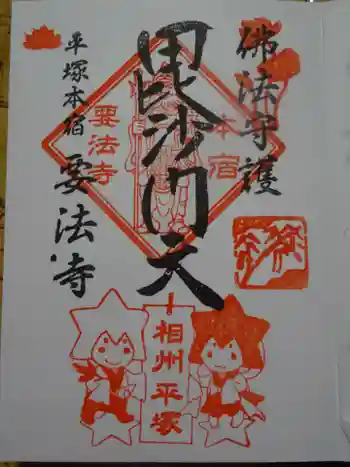 佛法守護
毘沙門天
平塚本宿
要法寺
本宿
要法寺
相州平塚